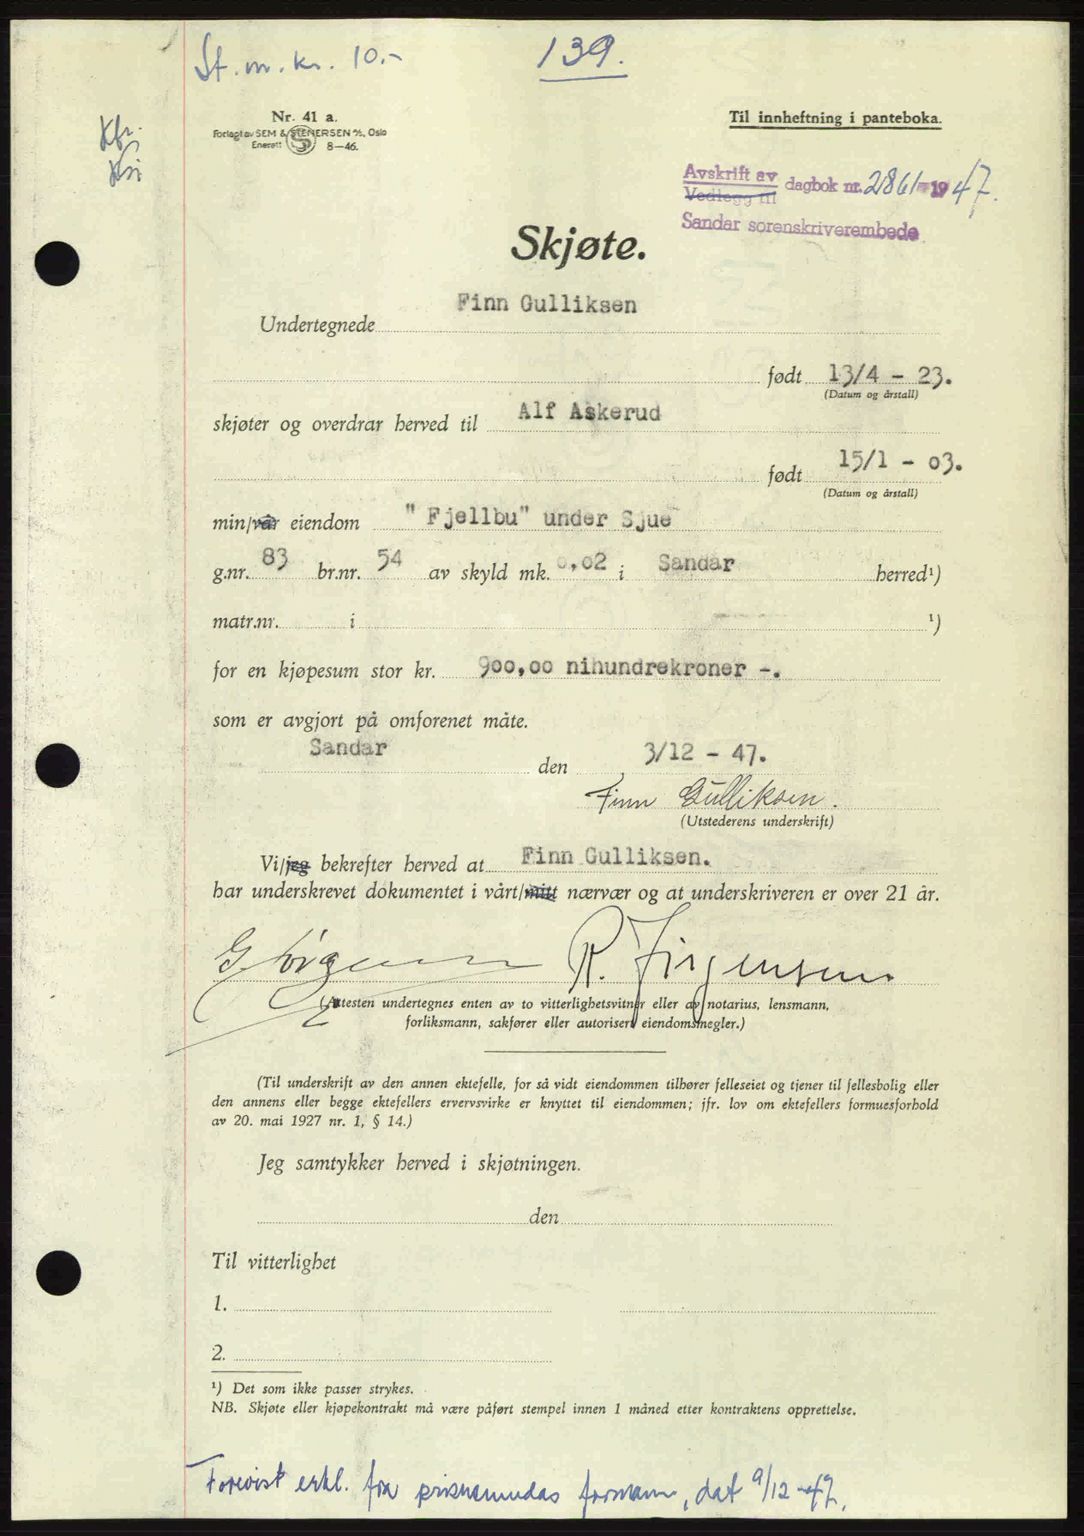 St. m. kr. 10.-
139.
Kfr.
Nr. 41 a.
Forlagt av SEM & STENERSEN A/S, Oslo
Enerett 8—46.
Til innheftning i panteboka.
Avskrift av
Vedlegg til
dagbok nr. 2861 - 1947.
Sandar sorenskriverembede
Skjøte.
Undertegnede Finn Gulliksen
født 13/4 - 23.
(Datum og årstall)
skjøter og overdrar herved til Alf Askerud
født 15/1 - 03.
(Datum og årstall)
min/vår eiendom " Fjellbu" under Sjue
g.nr. 83 br.nr. 54 av skyld mk. 0,02 i Sandar herred¹)
matr.nr. i ¹)
for en kjøpesum stor kr. 900,00 nihundrekroner -.
som er avgjort på omforenet måte.
Sandar den 3/12 - 47.
Finn Gulliksen.
(Utstederens underskrift)
Vi/jeg bekrefter herved at Finn Gulliksen.
har underskrevet dokumentet i vårt/mitt nærvær og at underskriveren er over 21 år.
G. Jørgensen R. Jørgensen
(Attesten undertegnes enten av to vitterlighetsvitner eller av notarius, lensmann,
forliksmann, sakfører eller autorisert eiendomsmegler.)
(Til underskrift av den annen ektefelle, for så vidt eiendommen tilhører felleseiet og tjener til fellesbolig eller
den annens eller begge ektefellers ervervsvirke er knyttet til eiendommen; jfr. lov om ektefellers formuesforhold
av 20. mai 1927 nr. 1, § 14.)
Jeg samtykker herved i skjøtningen.
den
Til vitterlighet
1.
2.
¹) Det som ikke passer strykes.
NB. Skjøte eller kjøpekontrakt må være påført stempel innen 1 måned etter kontraktens opprettelse.
Forevist erkl. fra prisnemndas formann, dat 9/12-47.